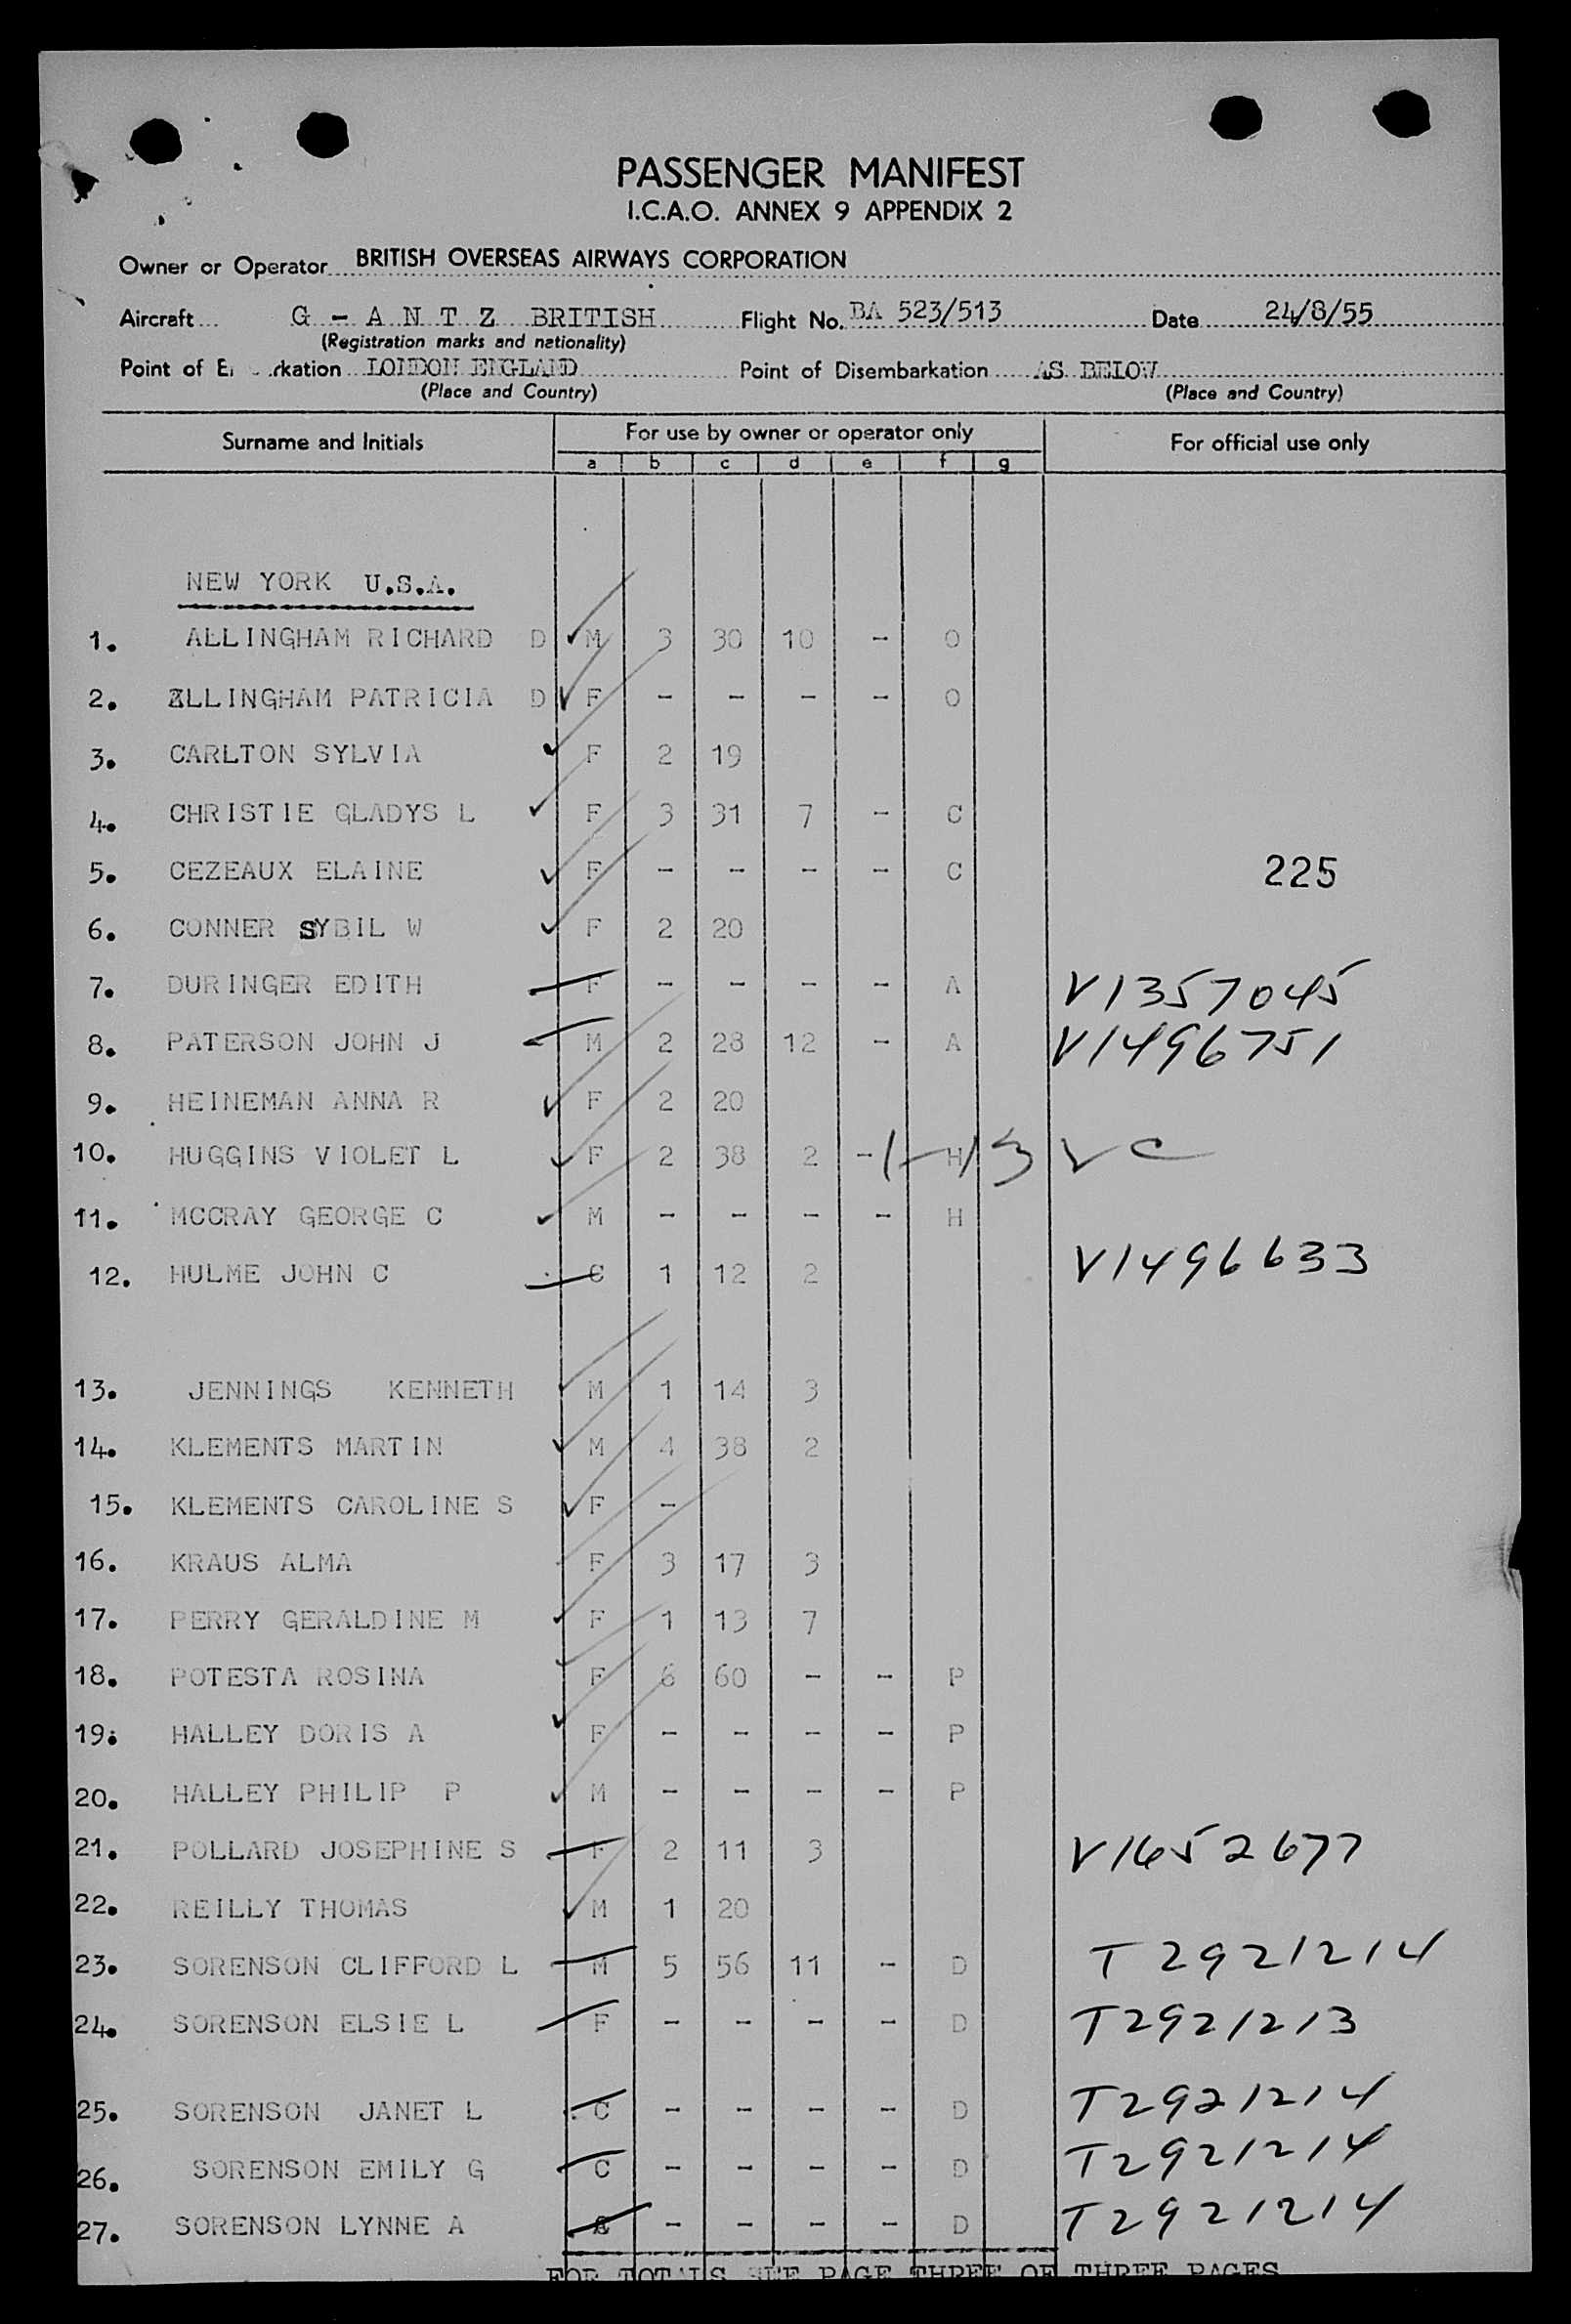 PASSENGER MANIFEST
I.C.A.O. ANNEX 9 APPENDIX 2
Owner or Operator BRITISH OVERSEAS AIRWAYS CORPORATION
Aircraft G - A N T Z BRITISH Flight No. BA 523/513 Date 24/8/55
(Registration marks and nationality)
Point of E rkation LONDON ENGLAND Point of Disembarkation AS BELOW
(Place and Country) (Place and Country)
Surname and Initials For use by owner or operator only For official use only
a b c d e f g
NEW YORK U.S.A.
1. ALLINGHAM RICHARD D M 3 30 10 - O
2. ALLINGHAM PATRICIA D F - - - - O
3. CARLTON SYLVIA F 2 19
4. CHRISTIE GLADYS L F 3 31 7 - C
5. CEZEAUX ELAINE F - - - - C 225
6. CONNER SYBIL W F 2 20
7. DURINGER EDITH F - - - - A V1357045
8. PATERSON JOHN J M 2 28 12 - A V1496751
9. HEINEMAN ANNA R F 2 20
10. HUGGINS VIOLET L F 2 38 2 - H
11. MCCRAY GEORGE C M - - - - H
12. HULME JOHN C C 1 12 2 V1496633
13. JENNINGS KENNETH M 1 14 3
14. KLEMENTS MARTIN M 4 38 2
15. KLEMENTS CAROLINE S F -
16. KRAUS ALMA F 3 17 3
17. PERRY GERALDINE M F 1 13 7
18. POTESTA ROSINA F 6 60 - - P
19. HALLEY DORIS A F - - - - P
20. HALLEY PHILIP P M - - - - P
21. POLLARD JOSEPHINE S F 2 11 3 V1652677
22. REILLY THOMAS M 1 20
23. SORENSON CLIFFORD L M 5 56 11 - D T2921214
24. SORENSON ELSIE L F - - - - D T2921213
25. SORENSON JANET L C - - - - D T2921214
26. SORENSON EMILY G C - - - - D T2921214
27. SORENSON LYNNE A C - - - - D T2921214
FOR TOTALS SEE PAGE THREE OF THREE PAGES